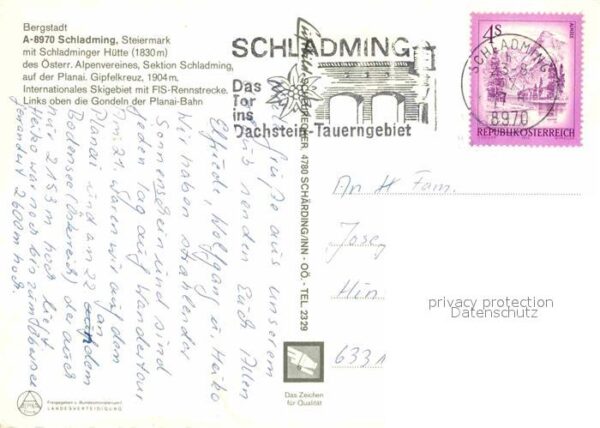 Bergstadt
A-8970 Schladming, Steiermark
mit Schladminger Hütte (1830 m)
des Österr. Alpenvereines, Sektion Schladming,
auf der Planai. Gipfelkreuz, 1904 m.
Internationales Skigebiet mit FIS-Rennstrecke.
Links oben die Gondeln der Planai-Bahn
SCHLADMING
Das
Tor
ins
Dachstein-Tauerngebiet
SCHLADMING
8970
4S
REPUBLIK ÖSTERREICH
4780 SCHÄRDING/INN - OÖ. - TEL. 23 29
Grüße aus unserem
senden Euch Allen
Elfriede, Wolfgang u. Heiko
Wir haben strahlenden
Sonnenschein und sind
jeden Tag auf Wandertour
Am 21. waren wir auf dem
Planai und am 22. an dem
Bodensee (Österreich) der auch
2153 m hoch liegt
Heiko war noch bis zum
2600 m hoch
An H Fam.
Josef
633
privacy protection
Datenschutz
Das Zeichen
für Qualität
Freigegeben v. Bundesministerium f.
LANDESVERTEIDIGUNG